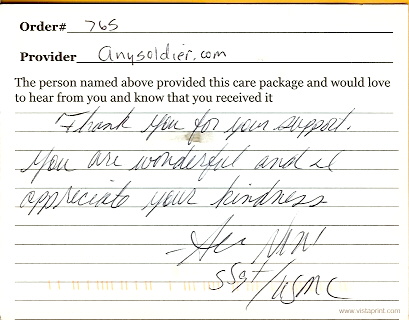 Order# 765
Provider anysoldier.com
The person named above provided this care package and would love
to hear from you and know that you received it
Thank you for your support.
You are wonderful and
appreciate your kindness
SSgt/USMC
www.vistaprint.com